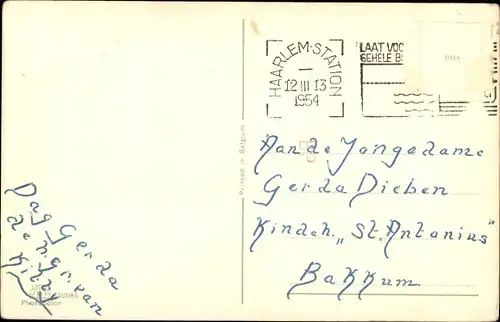 HAARLEM-STATION
12 III 13
1954
LAAT VOO
GEHELE B
Printed in Belgium
Aan de Jongedame
Gerda Dieben
Kindeh. „St. Antonius"
Bakkum
Dag Gerda
de n. gr. van
Kitty
Photocolor